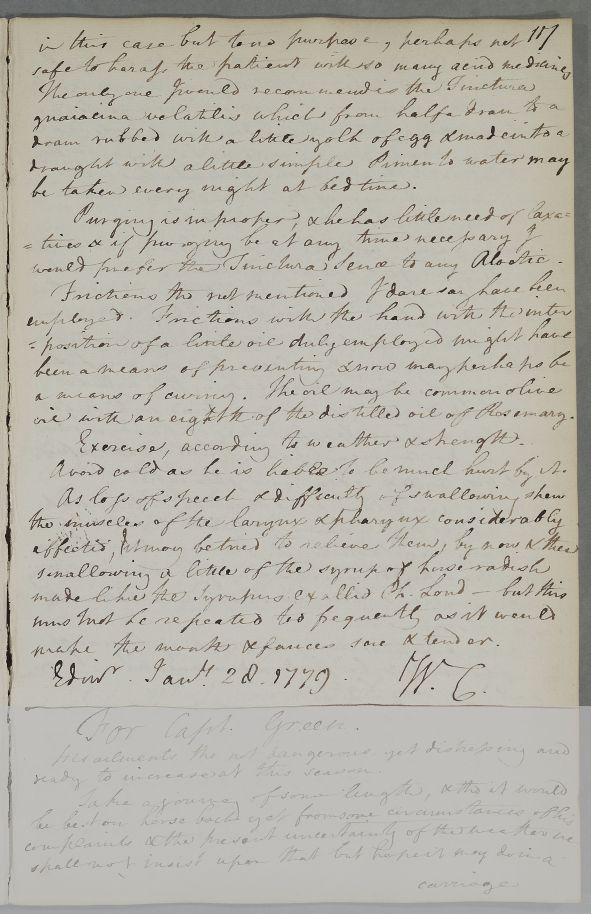 in this case but to no purpose, & perhaps not 107
safe to harass the patient with so many acrid medicines
The only one I would recommend is the Tinctura
guaiacina volatilis which from half a dram to a
dram rubbed with a little yolk of egg & made into a
draught with a little simple Pimento water may
be taken every night at bed time.
Purging is improper, & he has little need of laxa=
=tives & if purging be at any time necessary I
would prefer the Tinctura Senæ to any Aloetic.
Frictions tho not mentioned I dare say have been
employed. Frictions with the hand with the inter
=position of a little oil duly employed might have
been a means of preventing & now may perhaps be
a means of curing. The oil may be common olive
oil with an eighth of the distilled oil of Rosemary.
Exercise, according to weather & strength.
Avoid cold as he is liable to be much hurt by it.
As loss of speech & difficulty of swallowing shew
the muscles of the larynx & pharynx considerably
affected, it may be tried to relieve them, by now & then
swallowing a little of the syrup of horse radish
made like the Syrupus ex allio Ph. Lond - but this
must not be repeated too frequently as it would
make the mouth & fauces sore & tender.
Edinr. Jany. 28. 1779. W. C.
For Capt. Green.
His ailments tho not dangerous yet distressing and
ready to increase at this season.
Take a journey of some length, & tho it would
be best on horse back yet from some circumstances of his
complaints & the present uncertainty of the weather we
shall not insist upon that but hope it may do in a
carriage